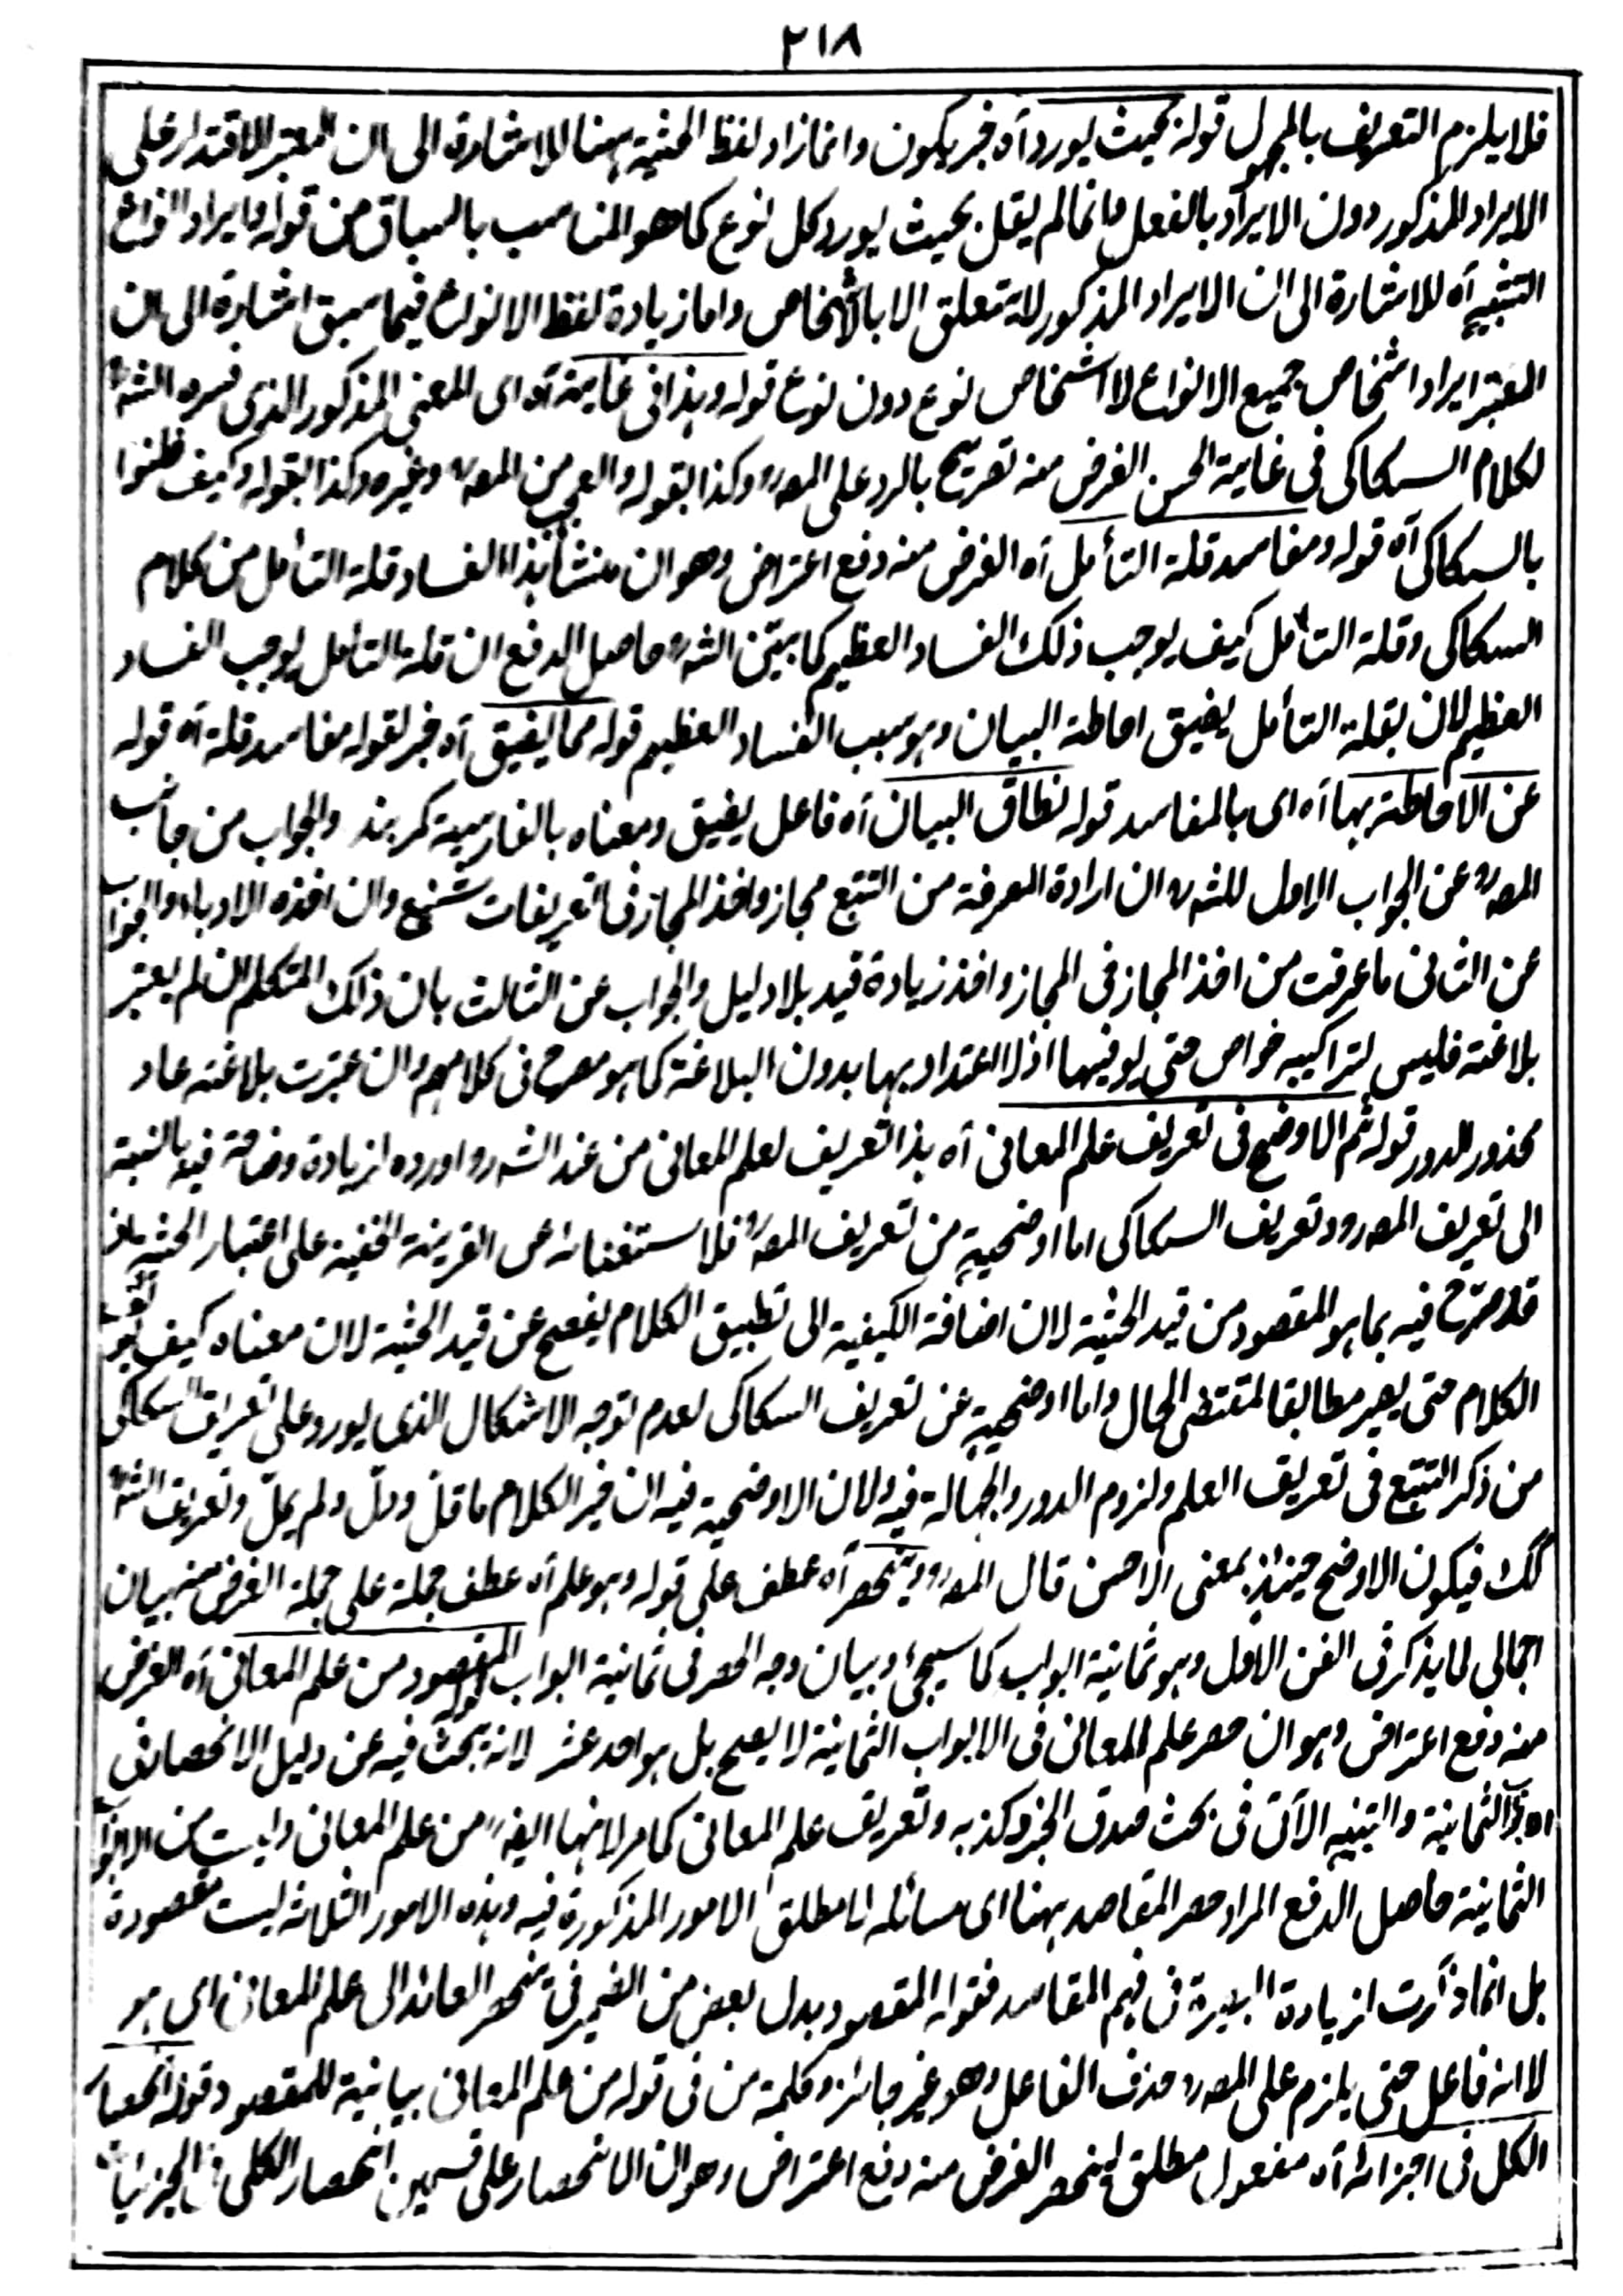 ٢١٨
فلا يلزم التعريف بالمجهول قوله بحيث يورد آه خبر يكون وانما زاد لفظ الحيثية ههنا للاشارة الى ان المعتبر الاقتدار على
الايراد المذكور دون الايراد بالفعل وانما لم يقل بحيث يورد كل نوع كما هو المناسب بالسباق من قوله وايراد انواع
التشبيه آه للاشارة الى ان الايراد المذكور لا يتعلق الا بالأشخاص واما زيادة لفظ الانواع فيما سبق اشارة الى ان
المعتبر ايراد اشخاص جميع الانواع لا اشخاص نوع دون نوع قوله وهذا فى غاية آه اى المعنى المذكور الذى فسره الشه
لكلام السكاكى فى غاية الحسن الغرض منه تصريح بالرد على المصر وكذا بقوله والعجب من المصر وغيره وكذا بقوله وكيف ظنوا
بالسكاكى آه قوله ومفاسد قلة التأمل آه الغرض منه دفع اعتراض وهو ان منشأ هذا الفساد قلة التأمل من كلام
السكاكى وقلة التأمل كيف يوجب ذلك الفساد العظيم كما بين الشه حاصل الدفع ان قلة التأمل يوجب الفساد
العظيم لان بقلة التأمل يضيق احاطة البيان وهو سبب الفساد العظيم قوله مما يضيق آه خبر لقوله مفاسد قلة آه قوله
عن الاحاطة بها آه اى بالمفاسد قوله نطاق البيان آه فاعل يضيق ومعناه بالفارسية كمر بند والجواب من جانب
المصر عن الجواب الاول للشه ان ارادة المعرفة من التتبع مجاز واخذ المجاز فى التعريفات شنيع وان اخذه الادباء والجواب
عن الثانى ما عرفت من اخذ المجاز فى المجاز واخذ زيادة قيد بلا دليل والجواب عن الثالث بان ذلك المتكلم ان لم يعتبر
بلاغته فليس لتراكيبه خواص حتى يوفيها اذ لا اعتداد بها بدون البلاغة كما هو مصرح فى كلامهم وان عبرت بلاغته عاد
محذور الدور قوله ثم الاوضح فى تعريف علم المعانى آه هذا التعريف لعلم المعانى من عند الشه واورده لزيادة وضاحة فيه بالنسبة
الى تعريف المصر وتعريف السكاكى اما اوضحيته من تعريف المصر فلا ستغنائه عن القرينة الخفية على اعتبار الحيثية فانه
قد صرح فيه بما هو المقصود من قيد الحيثية لان اضافة الكيفية الى تطبيق الكلام يفصح عن قيد الحيثية لان معناه كيف
الكلام حتى يصير مطابقا لمقتضى الحال واما اوضحيته عن تعريف السكاكى لعدم توجه الاشكال الذى يورد على تعريف السكاكى
من ذكر التتبع فى تعريف العلم ولزوم الدور والجهالة فيه ولان الاوضحية فيه ان خير الكلام ما قل ودل ولم يمل وتعريف الشه
كك فيكون الاوضح حينئذ بمعنى الاحسن قال المصر وينحصر آه عطف على قوله وهو علم آه عطف جملة على جملة الغرض منه بيان
اجمالى لما يذكر فى الفن الاول وهو ثمانية ابواب كما سيجئ وبيان وجه الحصر فى ثمانية ابواب قوله المقصود من علم المعانى آه الغرض
منه دفع اعتراض وهو ان حصر علم المعانى فى الابواب الثمانية لا يصح بل هو احد عشر لانه يبحث فيه عن دليل الانحصار فى
الثمانية والتنبيه الآتى فى بحث صدق الخبر وكذبه وتعريف علم المعانى كما مر لانها ايضا من علم المعانى وليست من الابواب
الثمانية حاصل الدفع المراد حصر المقاصد ههنا اى مسائله لا مطلق الامور المذكورة فيه وهذه الامور الثلاثة ليست مقصودة
بل انما ذكرت لزيادة البصيرة فى فهم المقاصد فقوله المقصود بدل بعض من الضمير فى ينحصر العائد الى علم المعانى اى هو
لا انه فاعل حتى يلزم على المصر حذف الفاعل وهو غير جائز وكلمة من فى قوله من علم المعانى بيانية للمقصود قوله انحصار
الكل فى اجزائه آه مفعول مطلق لينحصر الغرض منه دفع اعتراض وهو ان الانحصار على قسمين انحصار الكلى فى الجزئيات